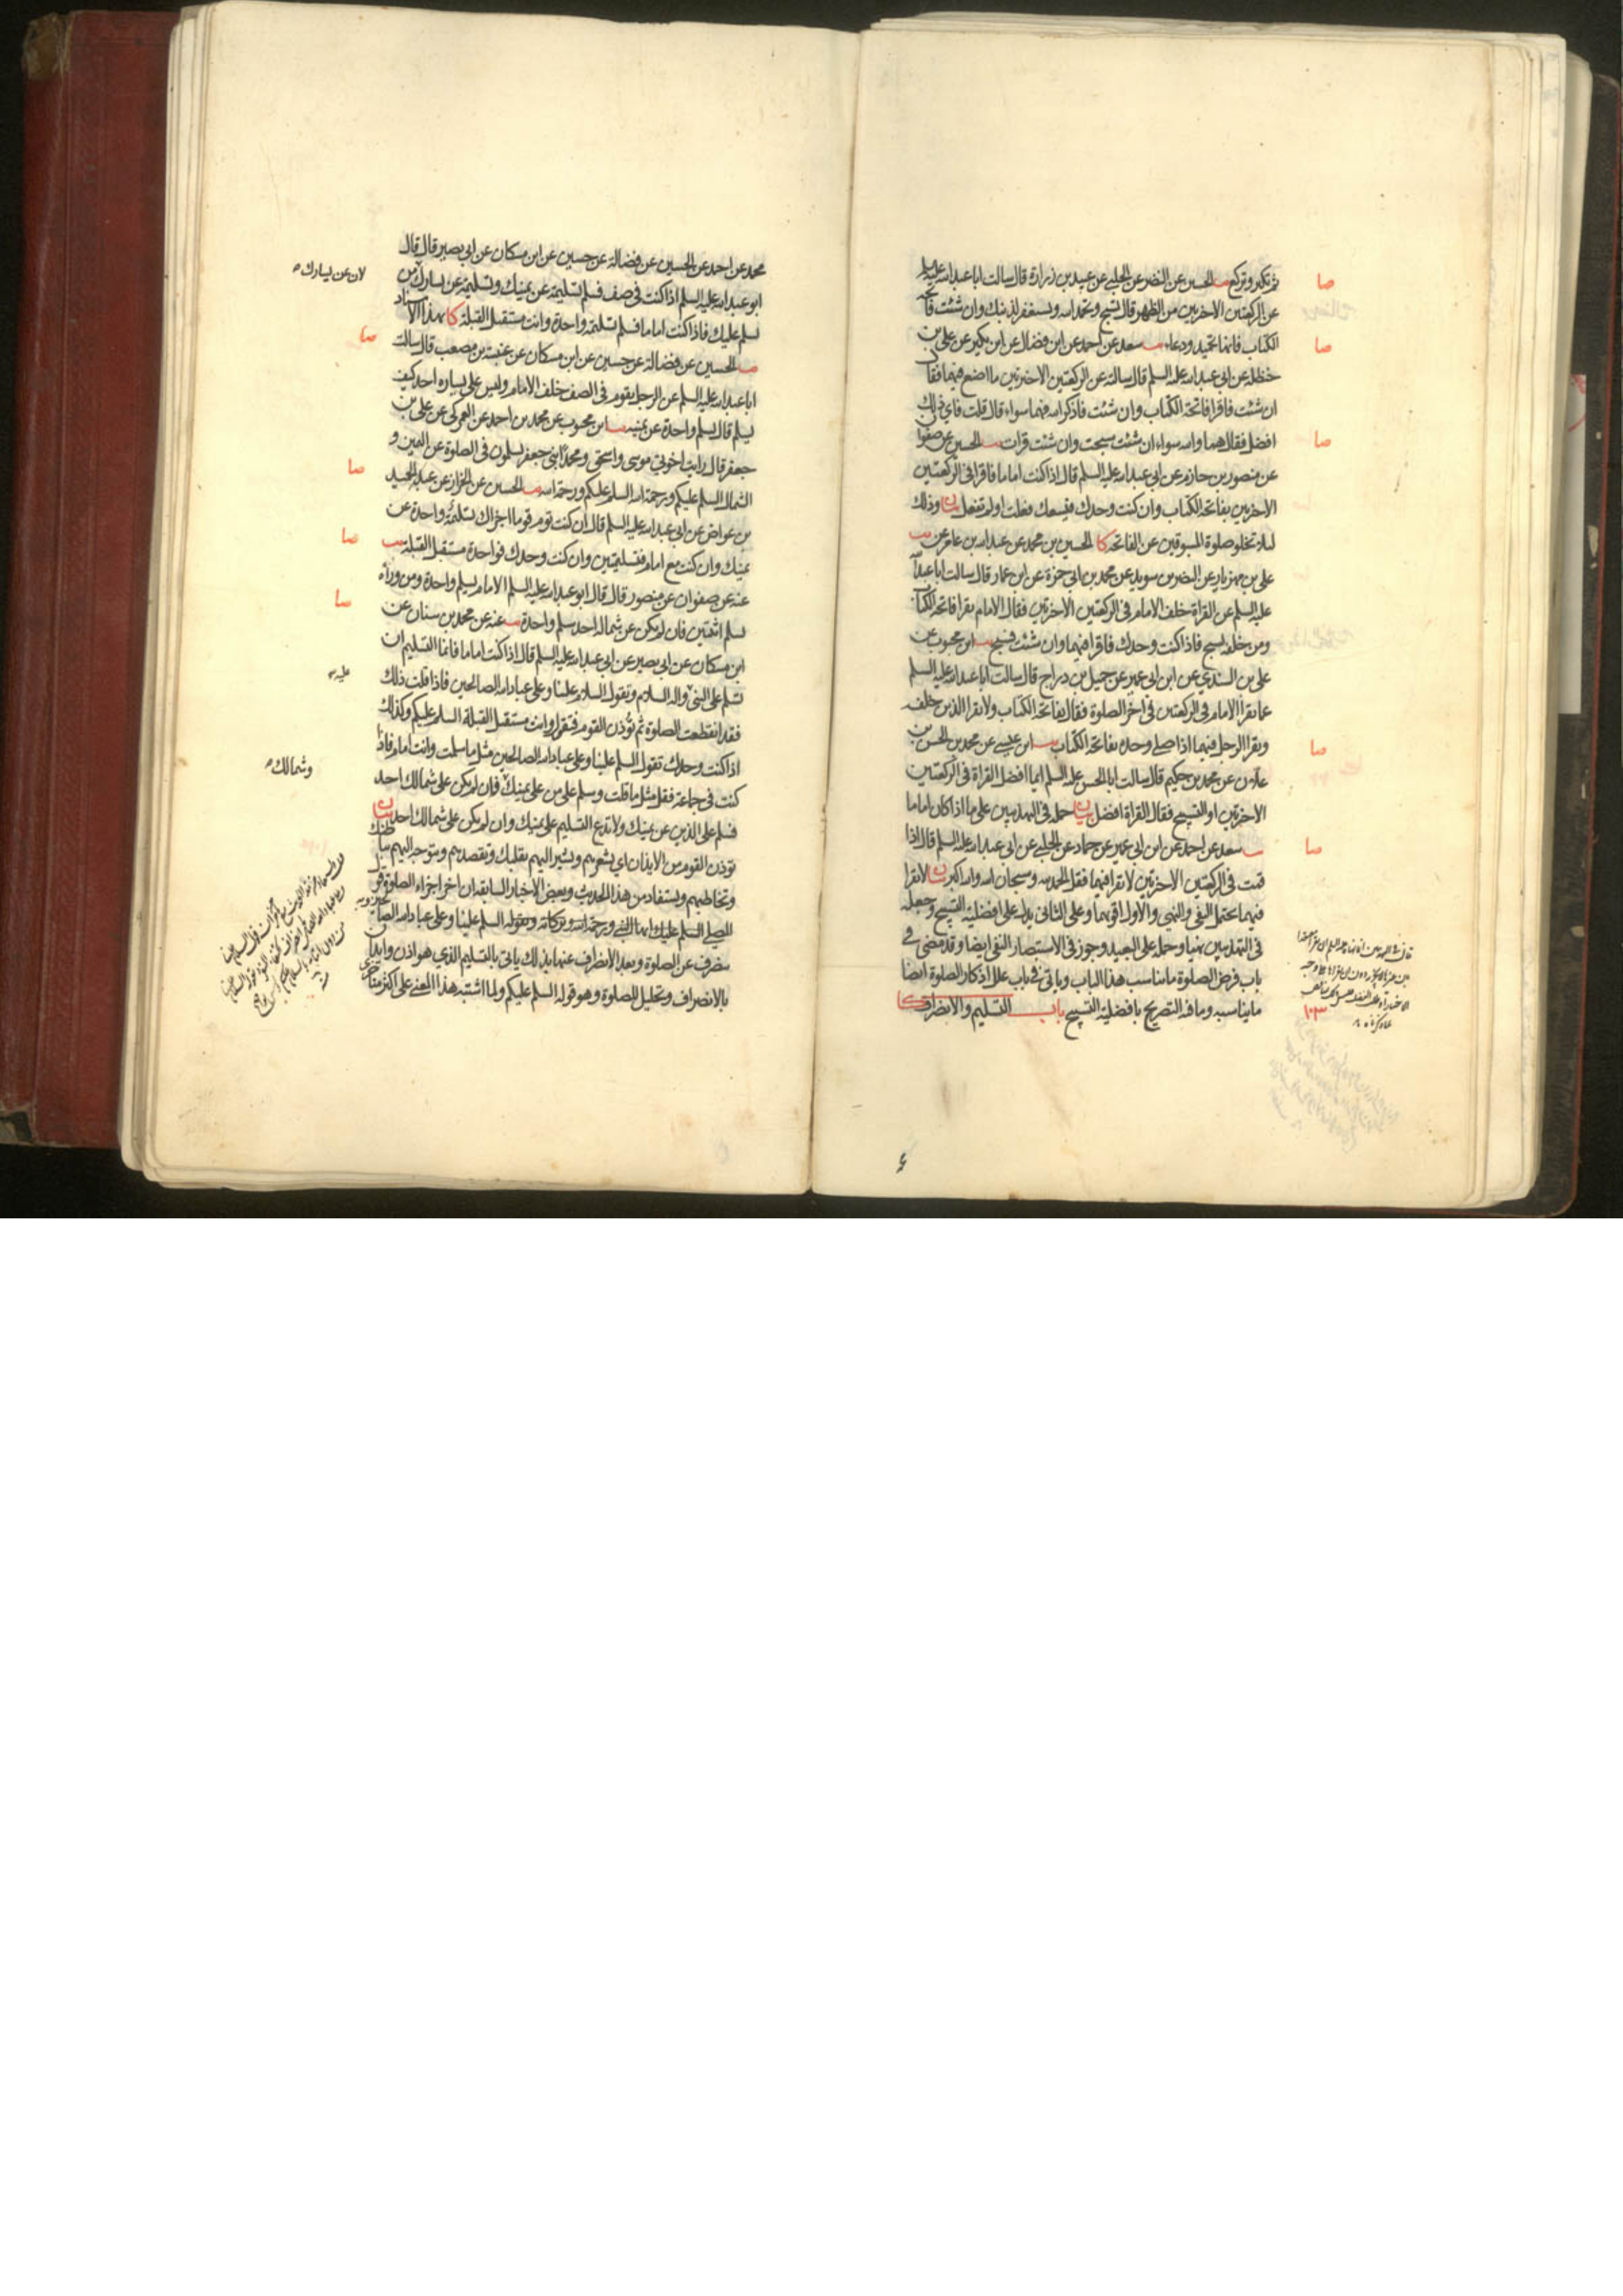 ثم تكبر وتركع يب الحسين عن النضر عن الحلبي عن عبيد بن زرارة قال سالت ابا عبد الله عليه السلم
عن الركعتين الاخرتين من الظهر قال تسبح وتحمد الله وتستغفر لذنبك وان شئت فاتحة
الكتاب فانها تحميد ودعاء يب سعد عن احمد عن ابن فضال عن ابن بكير عن علي بن
حنظلة عن ابي عبد الله عليه السلم قال سالته عن الركعتين الاخرتين ما اصنع فيهما فقال
ان شئت فاقرا فاتحة الكتاب وان شئت فاذكر الله فهما سواء قال قلت فاي ذلك
افضل فقال هما والله سواء ان شئت سبحت وان شئت قرات يب الحسين عن صفوان
عن منصور بن حازم عن ابي عبد الله عليه السلم قال اذا كنت اماما فاقرا في الركعتين
الاخرتين بفاتحة الكتاب وان كنت وحدك فيسعك فعلت او لم تفعل بيان وذلك
لئلا تخلو صلوة المسبوقين عن الفاتحة كا الحسين بن محمد عن عبد الله بن عامر عن يب
علي بن مهزيار عن النضر بن سويد عن محمد بن ابي حمزة عن ابن عمار قال سالت ابا عبد الله
عليه السلم عن القراة خلف الامام في الركعتين الاخرتين فقال الامام يقرا فاتحة الكتاب
ومن خلفه يسبح فاذا كنت وحدك فاقرا فيهما وان شئت فسبح يب ابن محبوب عن
علي بن السندي عن ابن ابي عمير عن جميل بن دراج قال سالت ابا عبد الله عليه السلم
عما يقرا الامام في الركعتين في اخر الصلوة فقال بفاتحة الكتاب ولا يقرا الذين خلفه
ويقرا الرجل فيهما اذا صلى وحده بفاتحة الكتاب يب ابن عيسى عن محمد بن الحسن بن
علان عن محمد بن حكيم قال سالت ابا الحسن عليه السلم ايما افضل القراة في الركعتين
الاخرتين او التسبيح فقال القراة افضل بيان حمله في التهذيبين على ما اذا كان اماما
يب سعد عن احمد عن ابن ابي عمير عن حماد عن الحلبي عن ابي عبد الله عليه السلم قال اذا
قمت في الركعتين الاخرتين لا تقرا فيهما فقل الحمد لله وسبحان الله والله اكبر بيان لا تقرا
فيهما يحتمل النفي والنهي والاول اقربهما وعلى الثاني يدل على افضلية التسبيح وجعله
في التهذيبين نهيا وحمله على البعيد وجوز في الاستبصار النفي ايضا وقد مضى في
باب فرض الصلوة ما يناسب هذا الباب وياتي في باب علل اذكار الصلوة ايضا
ما يناسبه وما فيه التصريح بافضلية التسبيح باب التسليم والانصراف كا
صا
صا
صا
صا
صا
محمد عن احمد عن الحسين عن فضالة عن حسين عن ابن مسكان عن ابي بصير قال قال
ابو عبد الله عليه السلم اذا كنت في صف فسلم تسليمة عن يمينك وتسليمة عن يسارك من
يسلم عليك فاذا كنت اماما فسلم تسليمة واحدة وانت مستقبل القبلة كا بهذا الاسناد
يب الحسين عن فضالة عن حسين عن ابن مسكان عن عنبسة بن مصعب قال سالت
ابا عبد الله عليه السلم عن الرجل يقوم في الصف خلف الامام وليس على يساره احد كيف
يسلم قال يسلم واحدة عن يمينه يب ابن محبوب عن محمد بن احمد عن العمركي عن علي بن
جعفر قال رايت اخوتي موسى واسحق ومحمدا بني جعفر يسلمون في الصلوة عن اليمين و
الشمال السلم عليكم ورحمة الله السلم عليكم ورحمة الله يب الحسين عن الخزاز عن عبد الحميد
بن عواض عن ابي عبد الله عليه السلم قال ان كنت تؤم قوما اجزاك تسليمة واحدة عن
يمينك وان كنت مع امام فتسليمتين وان كنت وحدك فواحدة مستقبل القبلة يب
عنه عن صفوان عن منصور قال قال ابو عبد الله عليه السلم الامام يسلم واحدة ومن وراه
يسلم اثنتين فان لم يكن عن شماله احد سلم واحدة يب عنه عن محمد بن سنان عن
ابن مسكان عن ابي بصير عن ابي عبد الله عليه السلم قال اذا كنت اماما فانما التسليم ان
تسلم على النبي واله السلام وتقول السلام علينا وعلى عباد الله الصالحين فاذا قلت ذلك
فقد انقطعت الصلوة ثم تؤذن القوم فتقول وانت مستقبل القبلة السلم عليكم وكذلك
اذا كنت وحدك تقول السلم علينا وعلى عباد الله الصالحين مثل ما سلمت وانت امام فاذا
كنت في جماعة فقل مثل ما قلت وسلم على من على يمينك فان لم يكن على شمالك احد
فسلم على الذين عن يمينك ولا تدع التسليم على يمينك وان لم يكن على شمالك احد بيان
تؤذن القوم من الايذان اي تشعرهم وتشير اليهم بقلبك وتقصدهم وتتوجه اليهم
وتخاطبهم ويستفاد من هذا الحديث وبعض الاخبار السابقة ان اخر اجزاء الصلوة قول
المصلي السلم عليك ايها النبي ورحمة الله وبركاته وبقوله السلم علينا وعلى عباد الله الصالحين
ينصرف عن الصلوة وبعد الانصراف عنها بذلك ياتي بالتسليم الذي هو اذن وايذان
بالانصراف وتحليل للصلوة وهو قوله السلم عليكم ولما اشتبه هذا المعنى على اكثر متاخري
لان عن يسارك
صا
صا
صا
صا
عليه
وشمالك